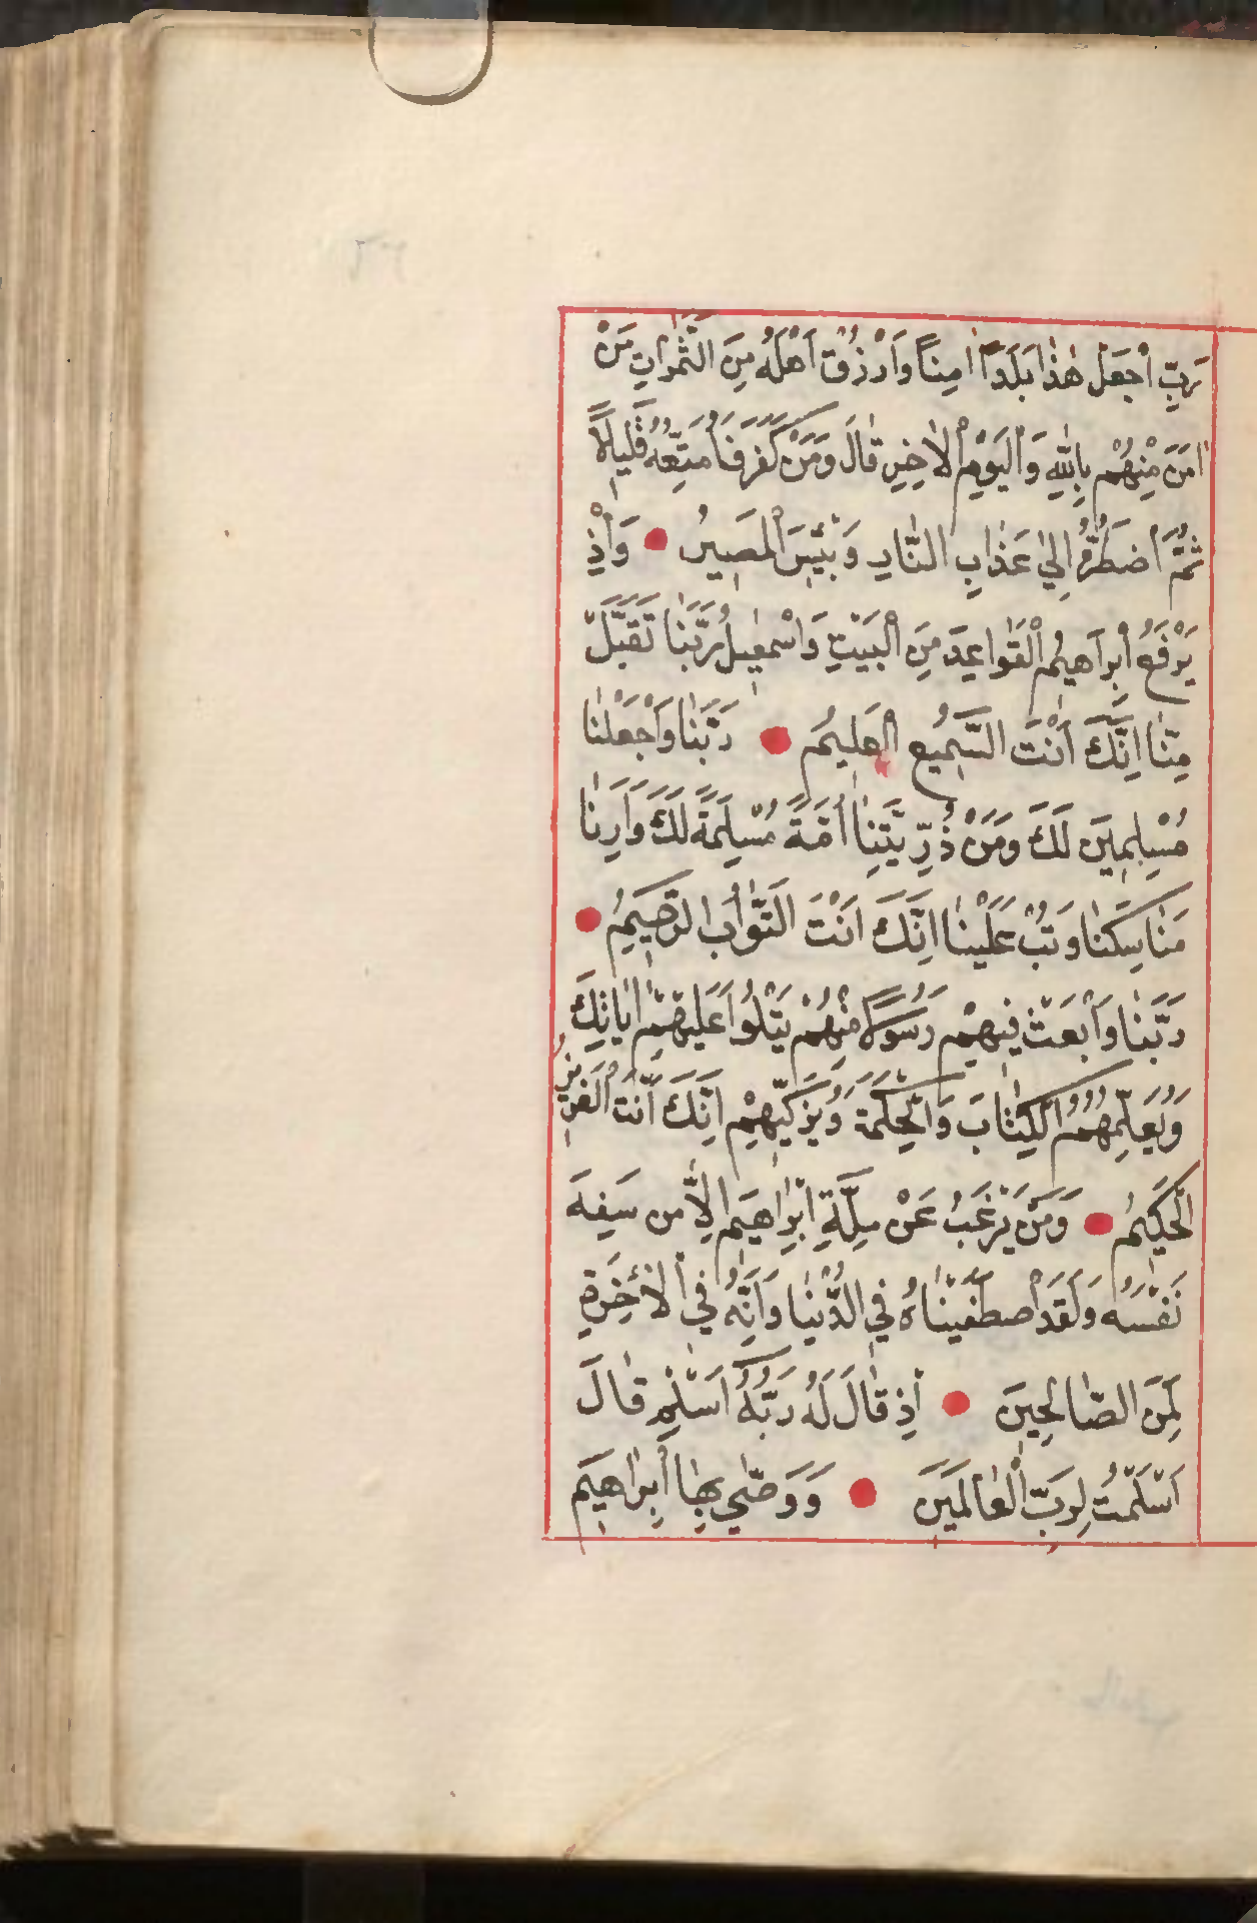 رَبِّ اجْعَلْ هٰذَا بَلَدًا اٰمِنًا وَارْزُقْ اَهْلَهُ مِنَ الثَّمَرٰاتِ مَنْ
اٰمَنَ مِنْهُمْ بِاللّٰهِ وَالْيَوْمِ الْاٰخِرِ قٰالَ وَمَنْ كَفَرَ فَاُمَتِّعُهُ قَلِيلًا
ثُمَّ اَضْطَرُّهُ اِلٰي عَذٰابِ النّٰارِ وَبِئْسَ الْمَصِيرُ ● وَاِذْ
يَرْفَعُ اِبْرٰاهِيمُ الْقَوٰاعِدَ مِنَ الْبَيْتِ وَاِسْمٰعِيلُ رَبَّنٰا تَقَبَّلْ
مِنّٰا اِنَّكَ اَنْتَ السَّمِيعُ الْعَلِيمُ ● رَبَّنٰا وَاجْعَلْنٰا
مُسْلِمِينَ لَكَ وَمِنْ ذُرِّيَّتِنٰا اُمَّةً مُسْلِمَةً لَكَ وَاَرِنٰا
مَنٰاسِكَنٰا وَتُبْ عَلَيْنٰا اِنَّكَ اَنْتَ التَّوّٰابُ الرَّحِيمُ ●
رَبَّنٰا وَابْعَثْ فِيهِمْ رَسُولًا مِنْهُمْ يَتْلُوا عَلَيْهِمْ اٰيٰاتِكَ
وَيُعَلِّمُهُمُ الْكِتٰابَ وَالْحِكْمَةَ وَيُزَكِّيهِمْ اِنَّكَ اَنْتَ الْعَزِيزُ
الْحَكِيمُ ● وَمَنْ يَرْغَبُ عَنْ مِلَّةِ اِبْرٰاهِيمَ اِلَّا من سَفِهَ
نَفْسَهُ وَلَقَدِ اصْطَفَيْنٰاهُ فِي الدُّنْيٰا وَاِنَّهُ فِي الْاٰخِرَةِ
لَمِنَ الصّٰالِحِينَ ● اِذ قٰالَ لَهُ رَبُّهُ اَسْلِمْ قٰالَ
اَسْلَمْتُ لِرَبِّ الْعٰالَمِينَ ● وَوَصّٰي بِهٰا اِبْرٰاهِيمُ